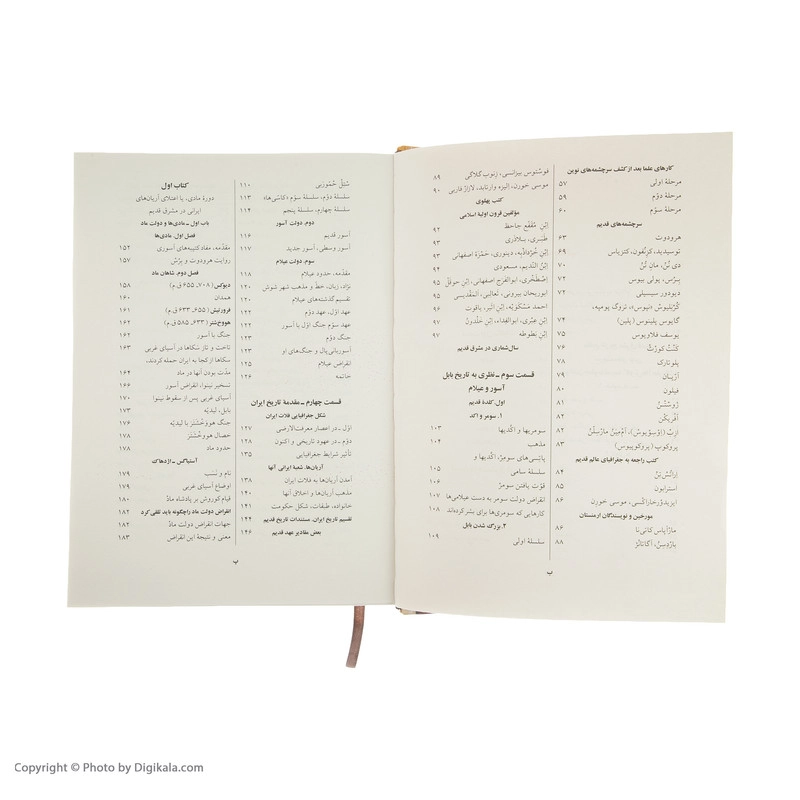 کارهای علما بعد از کشف سرچشمه‌های نوین
مرحلهٔ اولی ۵۷
مرحلهٔ دوّم ۵۹
مرحلهٔ سوّم ۶۰
سرچشمه‌های قدیم
هرودوت ۶۳
توسیدید، کزنُفون، کتزیاس ۶۹
دی نُنْ، مان تُنْ ۷۰
بِرُس، پولی بیوس ۷۲
دیودور سیسیلی ۷۲
کُرْنِلیوش «نپوس»، تروگ پومپه،
گایوس پلینوس (پلین) ۷۴
یوسف فلاویوس ۷۵
کَنْت کورْث ۷۶
پلوتارک ۷۸
آرْیان ۷۹
فیلون ۸۰
ژوستَنْ ۸۱
آفْریکَنْ ۸۲
پروکوپ (پروکوپیوس) ۸۳
کتب راجعه به جغرافیای عالم قدیم
اِراتُسْتِنْ ۸۴
استرابون ۸۵
ایزیدوُرخاراکْسی، موسی خورن ۸۶
مورخین و نویسندگان ارمنستان
مارآپاس کاتی‌نا ۸۶
باردِسِنْ، آگاتانْژ ۸۸
فوسْتوس بیزانسی، زنوب گلاکی ۸۹
موسی خورن، الیزه وارتابد، لازار فاربی ۹۰
کتب پهلوی
مؤلفین قرون اولیهٔ اسلامی
ابْنِ مُقَفِّع جاحظ ۹۲
طَبَری، بِلاذری ۹۳
اِبْنِ خُرْدادْبِه، دینوری، حَمْزهٔ اصفهانی ۹۳
اِبْنُ النَّدیم، مسعودی ۹۴
اِصْطَخْری، ابوالفرج اصفهانی، اِبْنِ حوقَلْ ۹۵
ابوریحان بیرونی، ثعالبی، المَقْدیسی ۹۵
احمد مَسْکویه، اِبْنِ اثیر، یاقوت ۹۶
اِبْنِ عِبْری، ابوالفِداء، اِبْنِ خَلْدونْ ۹۷
اِبْنِ بطوطه ۹۷
سال‌شماری در مشرق قدیم
قسمت سوم ـ نظری به تاریخ بابل
آسور و عیلام
اول. کلدهٔ قدیم
۱. سومر و اکد
سومریها و اکّدیها ۱۰۳
مذهب ۱۰۴
پاتِسی‌های سومِرْ، اکّدیها و
سلسلهٔ سامی ۱۰۵
قوّت یافتن سومِرْ ۱۰۶
انقراض دولت سومر به دست عیلامی‌ها ۱۰۷
کارهایی که سومری‌ها برای بشر کرده‌اند ۱۰۸
۲. بزرگ شدن بابل
سلسلهٔ اولی ۱۰۹
ب
سُتِلْ حَمّورَبی ۱۱۰
سلسلهٔ دوّم، سلسلهٔ سوّم «کاسّی‌ها» ۱۱۳
سلسلهٔ چهارم، سلسلهٔ پنجم ۱۱۴
دوم. دولت آسور
آسور قدیم ۱۱۶
آسور وسطی، آسور جدید ۱۱۷
سوم. دولت عیلام
مقدّمه، حدود عیلام ۱۱۸
نژاد، زبان، خطّ و مذهب شهر شوش ۱۲۰
تقسیم گذشته‌های عیلام ۱۲۰
عهد اوّل، عهد دوّم ۱۲۲
عهد سوّم جنگ اوّل با آسور ۱۲۲
جنگ دوّم ۱۲۳
آسوربانی‌پال و جنگ‌های او ۱۲۳
انقراض عیلام ۱۲۵
خاتمه ۱۲۶
قسمت چهارم ـ مقدمهٔ تاریخ ایران
شکل جغرافیایی فلات ایران
اوّل ـ در اعصار معرفت‌الارضی ۱۲۷
دوّم ـ در عهود تاریخی و اکنون ۱۲۸
تأثیر شرایط جغرافیایی ۱۳۵
آریان‌ها، شعبهٔ ایرانی آنها
آمدن آریان‌ها به فلات ایران ۱۳۸
مذهب آریان‌ها و اخلاق آنها ۱۴۰
خانواده، طبقات، شکل حکومت ۱۴۱
تقسیم تاریخ ایران، مستندات تاریخ قدیم ۱۴۴
بعض مقادیر عهد قدیم ۱۴۶
کتاب اول
دورهٔ مادی، یا اعتلای آریان‌های
ایرانی در مشرق قدیم
باب اول ـ مادی‌ها و دولت ماد
فصل اول. مادی‌ها
مقدّمه، مفاد کتیبه‌های آسوری ۱۵۲
روایت هرودوت و برُسْ ۱۵۷
فصل دوم. شاهان ماد
دیوُکِس (۷۰۸، ۶۵۵ ق.م)
همدان ۱۶۰
فرورتیش (۶۵۵، ۶۳۳ ق.م) ۱۶۱
هووخ‌شتر (۶۳۳، ۵۸۵ ق.م) ۱۶۲
جنگ با آسور ۱۶۲
تاخت و تاز سکاها در آسیای غربی ۱۶۳
سکاها از کجا به ایران حمله کردند.
مدّت بودن آنها در ماد ۱۶۴
تسخیر نینوا، انقراض آسور ۱۶۶
آسیای غربی پس از سقوط نینوا ۱۷۰
بابل، لیدیّه ۱۷۳
جنگ هووخْشَتَرَ با لیدیّه ۱۷۶
خصال هووخْشَتَرَ ۱۷۸
حدود ماد ۱۷۸
آستیاگس ـ اژدهاک
نام و نَسَب ۱۷۹
اوضاع آسیای غربی ۱۷۹
قیام کوروش بر پادشاه مادّ ۱۸۰
انقراض دولت ماد را چگونه باید تلقی کرد ۱۸۲
جهات انقراض دولت مادْ ۱۸۲
معنی و نتیجهٔ این انقراض ۱۸۳
پ
Copyright © Photo by Digikala.com